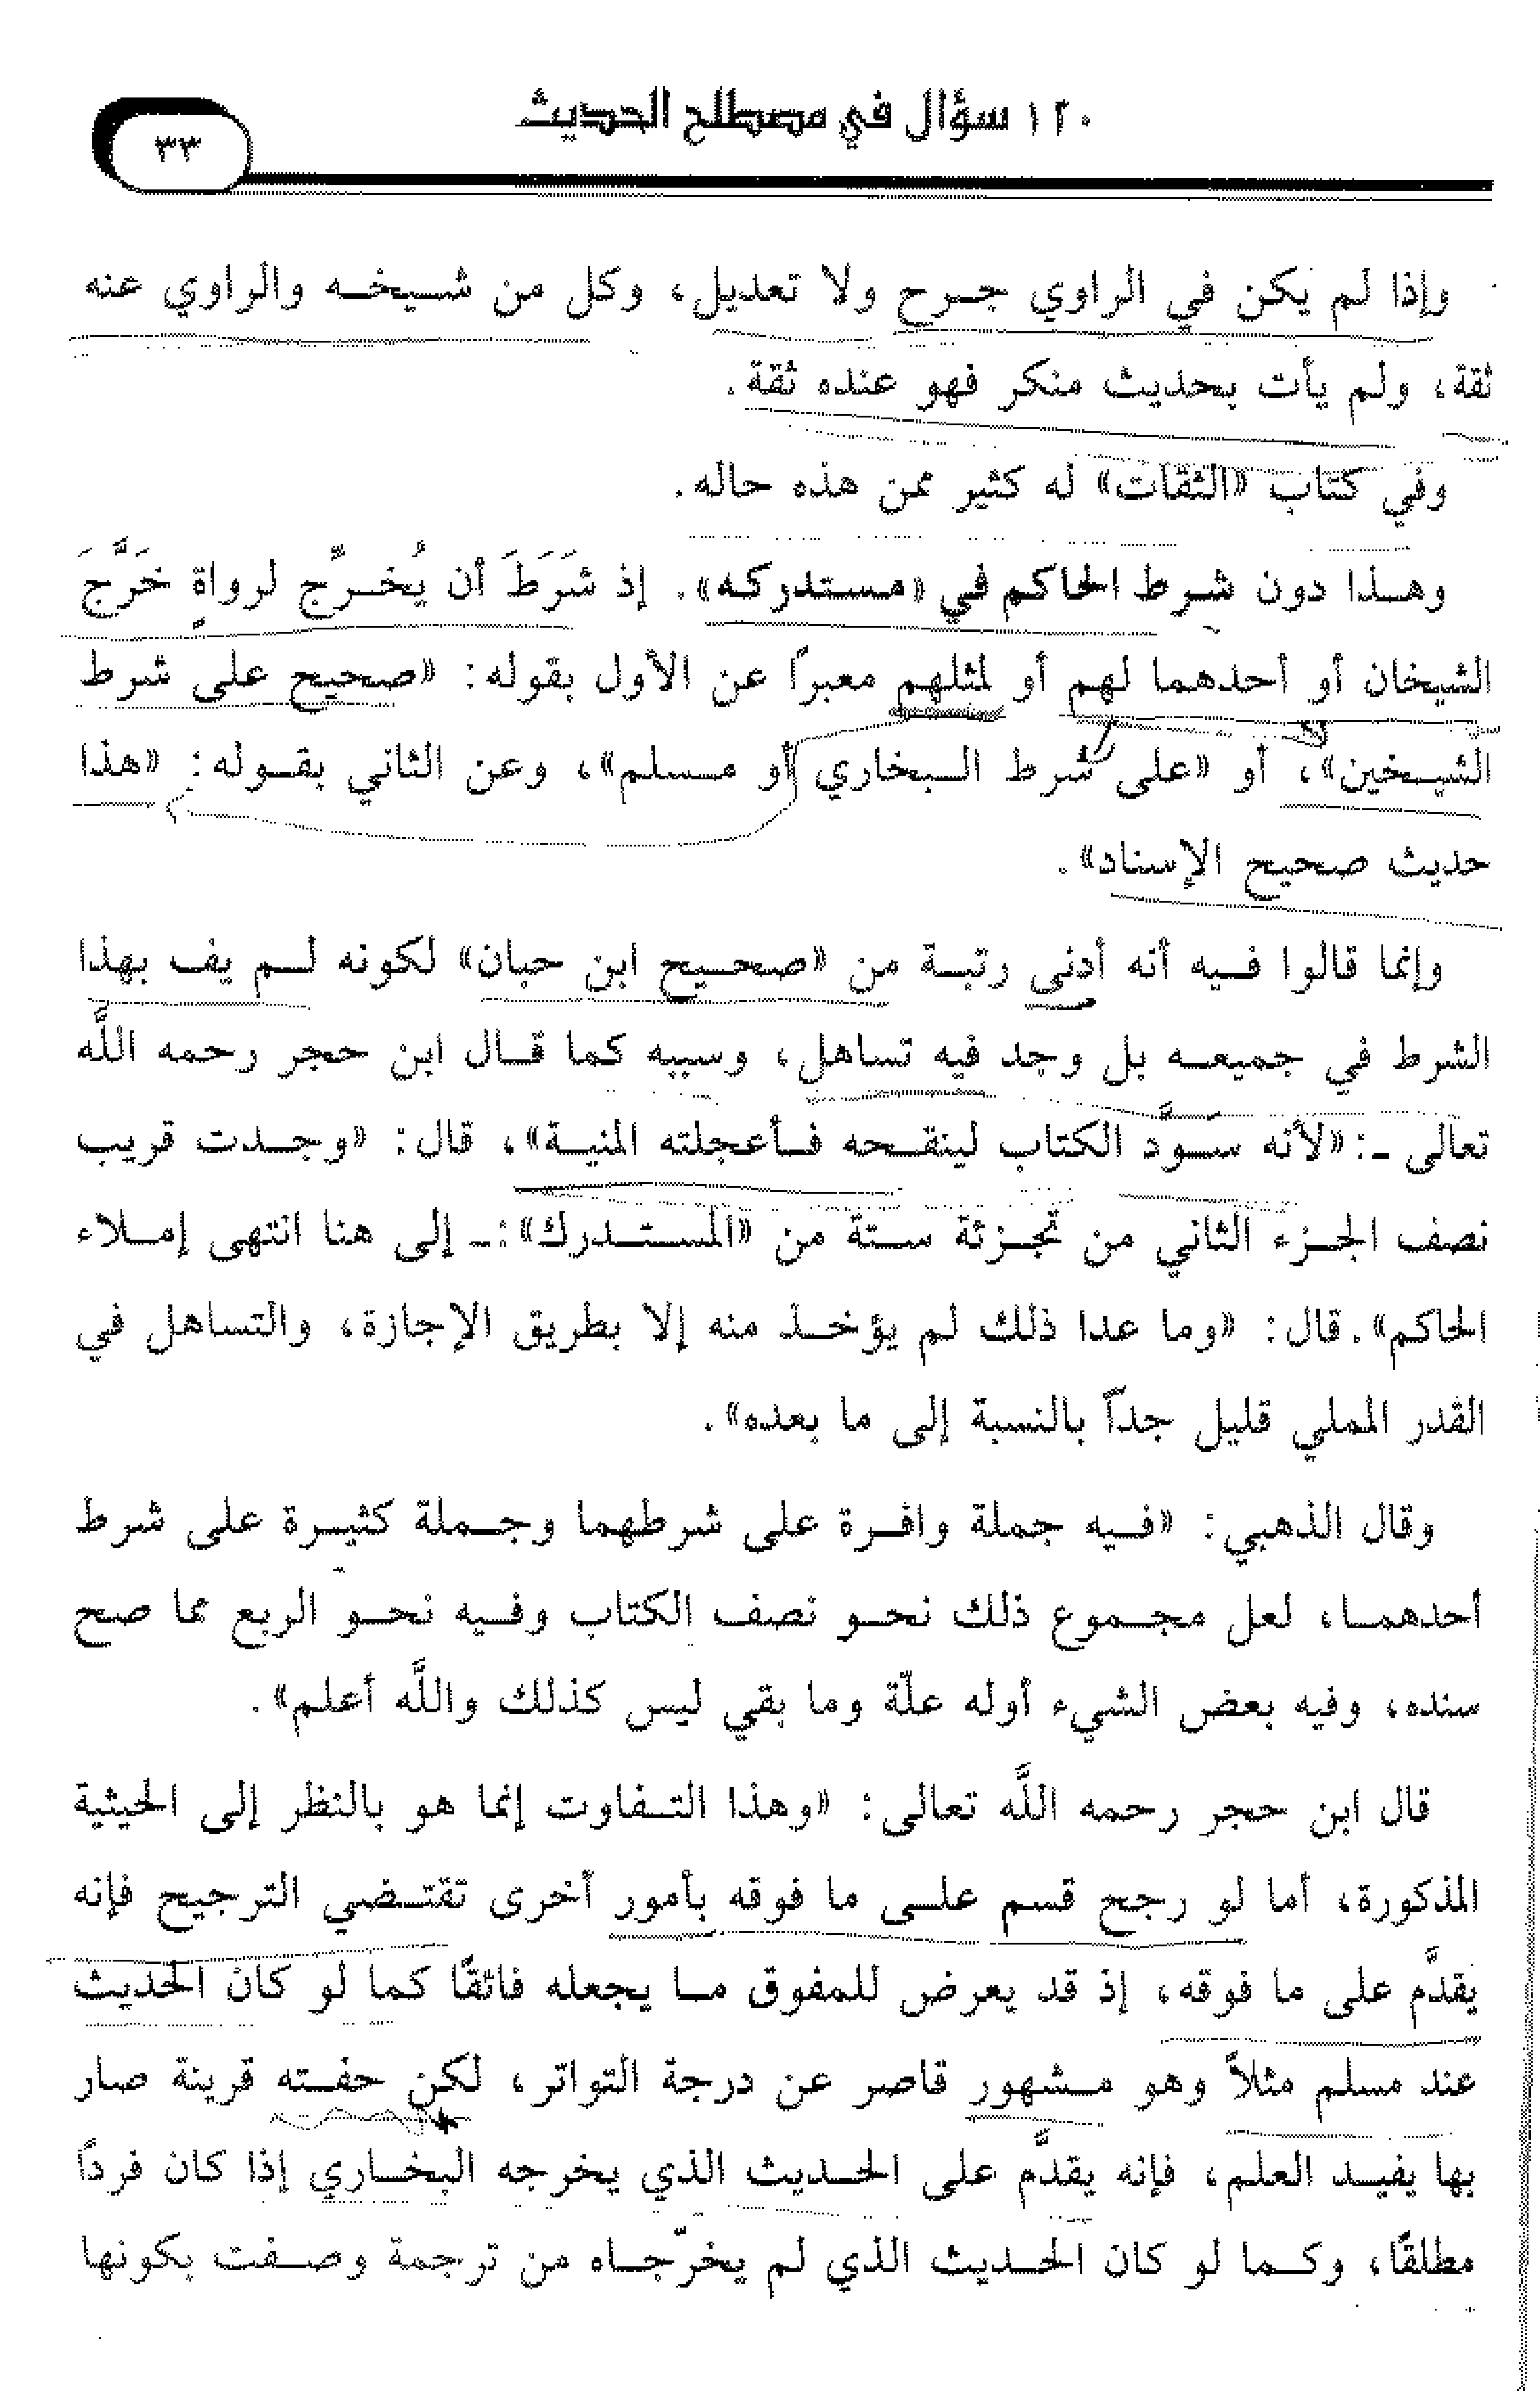 ١٢٠ سؤال في مصطلح الحديث
٣٣
وإذا لم يكن في الراوي جرح ولا تعديل، وكل من شيخه والراوي عنه
ثقة، ولم يأت بحديث منكر فهو عنده ثقة.
وفي كتاب «الثقات» له كثير ممن هذه حاله.
وهذا دون شرط الحاكم في «مستدركه». إذ شَرَطَ أن يُخرِّج لرواةٍ خَرَّجَ
الشيخان أو أحدهما لهم أو لمثلهم معبرًا عن الأول بقوله: «صحيح على شرط
الشيخين»، أو «على شرط البخاري أو مسلم»، وعن الثاني بقوله: «هذا
حديث صحيح الإسناد».
وإنما قالوا فيه أنه أدنى رتبة من «صحيح ابن حبان» لكونه لم يف بهذا
الشرط في جميعه بل وجد فيه تساهل، وسببه كما قال ابن حجر رحمه اللَّه
تعالى ـ: «لأنه سَوَّد الكتاب لينقحه فأعجلته المنية»، قال: «وجدت قريب
نصف الجزء الثاني من تجزئة ستة من «المستدرك»:ـ إلى هنا انتهى إملاء
الحاكم». قال: «وما عدا ذلك لم يؤخذ منه إلا بطريق الإجازة، والتساهل في
القدر المملي قليل جداً بالنسبة إلى ما بعده».
وقال الذهبي: «فيه جملة وافرة على شرطهما وجملة كثيرة على شرط
أحدهما، لعل مجموع ذلك نحو نصف الكتاب وفيه نحو الربع مما صح
سنده، وفيه بعض الشيء أوله علّة وما بقي ليس كذلك واللَّه أعلم».
قال ابن حجر رحمه اللَّه تعالى: «وهذا التفاوت إنما هو بالنظر إلى الحيثية
المذكورة، أما لو رجح قسم على ما فوقه بأمور أخرى تقتضي الترجيح فإنه
يقدَّم على ما فوقه، إذ قد يعرض للمفوق ما يجعله فائقًا كما لو كان الحديث
عند مسلم مثلاً وهو مشهور قاصر عن درجة التواتر، لكن حفته قرينة صار
بها يفيد العلم، فإنه يقدَّم على الحديث الذي يخرجه البخاري إذا كان فرداً
مطلقًا، وكما لو كان الحديث الذي لم يخرّجاه من ترجمة وصفت بكونها